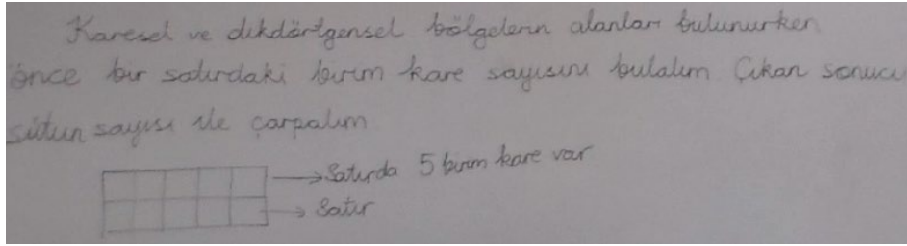 Karesel ve dikdörtgensel bölgelerin alanları bulunurken
önce bir satırdaki birim kare sayısını bulalım Çıkan sonucu
sütun sayısı ile çarpalım
Satırda 5 birim kare var
Satır